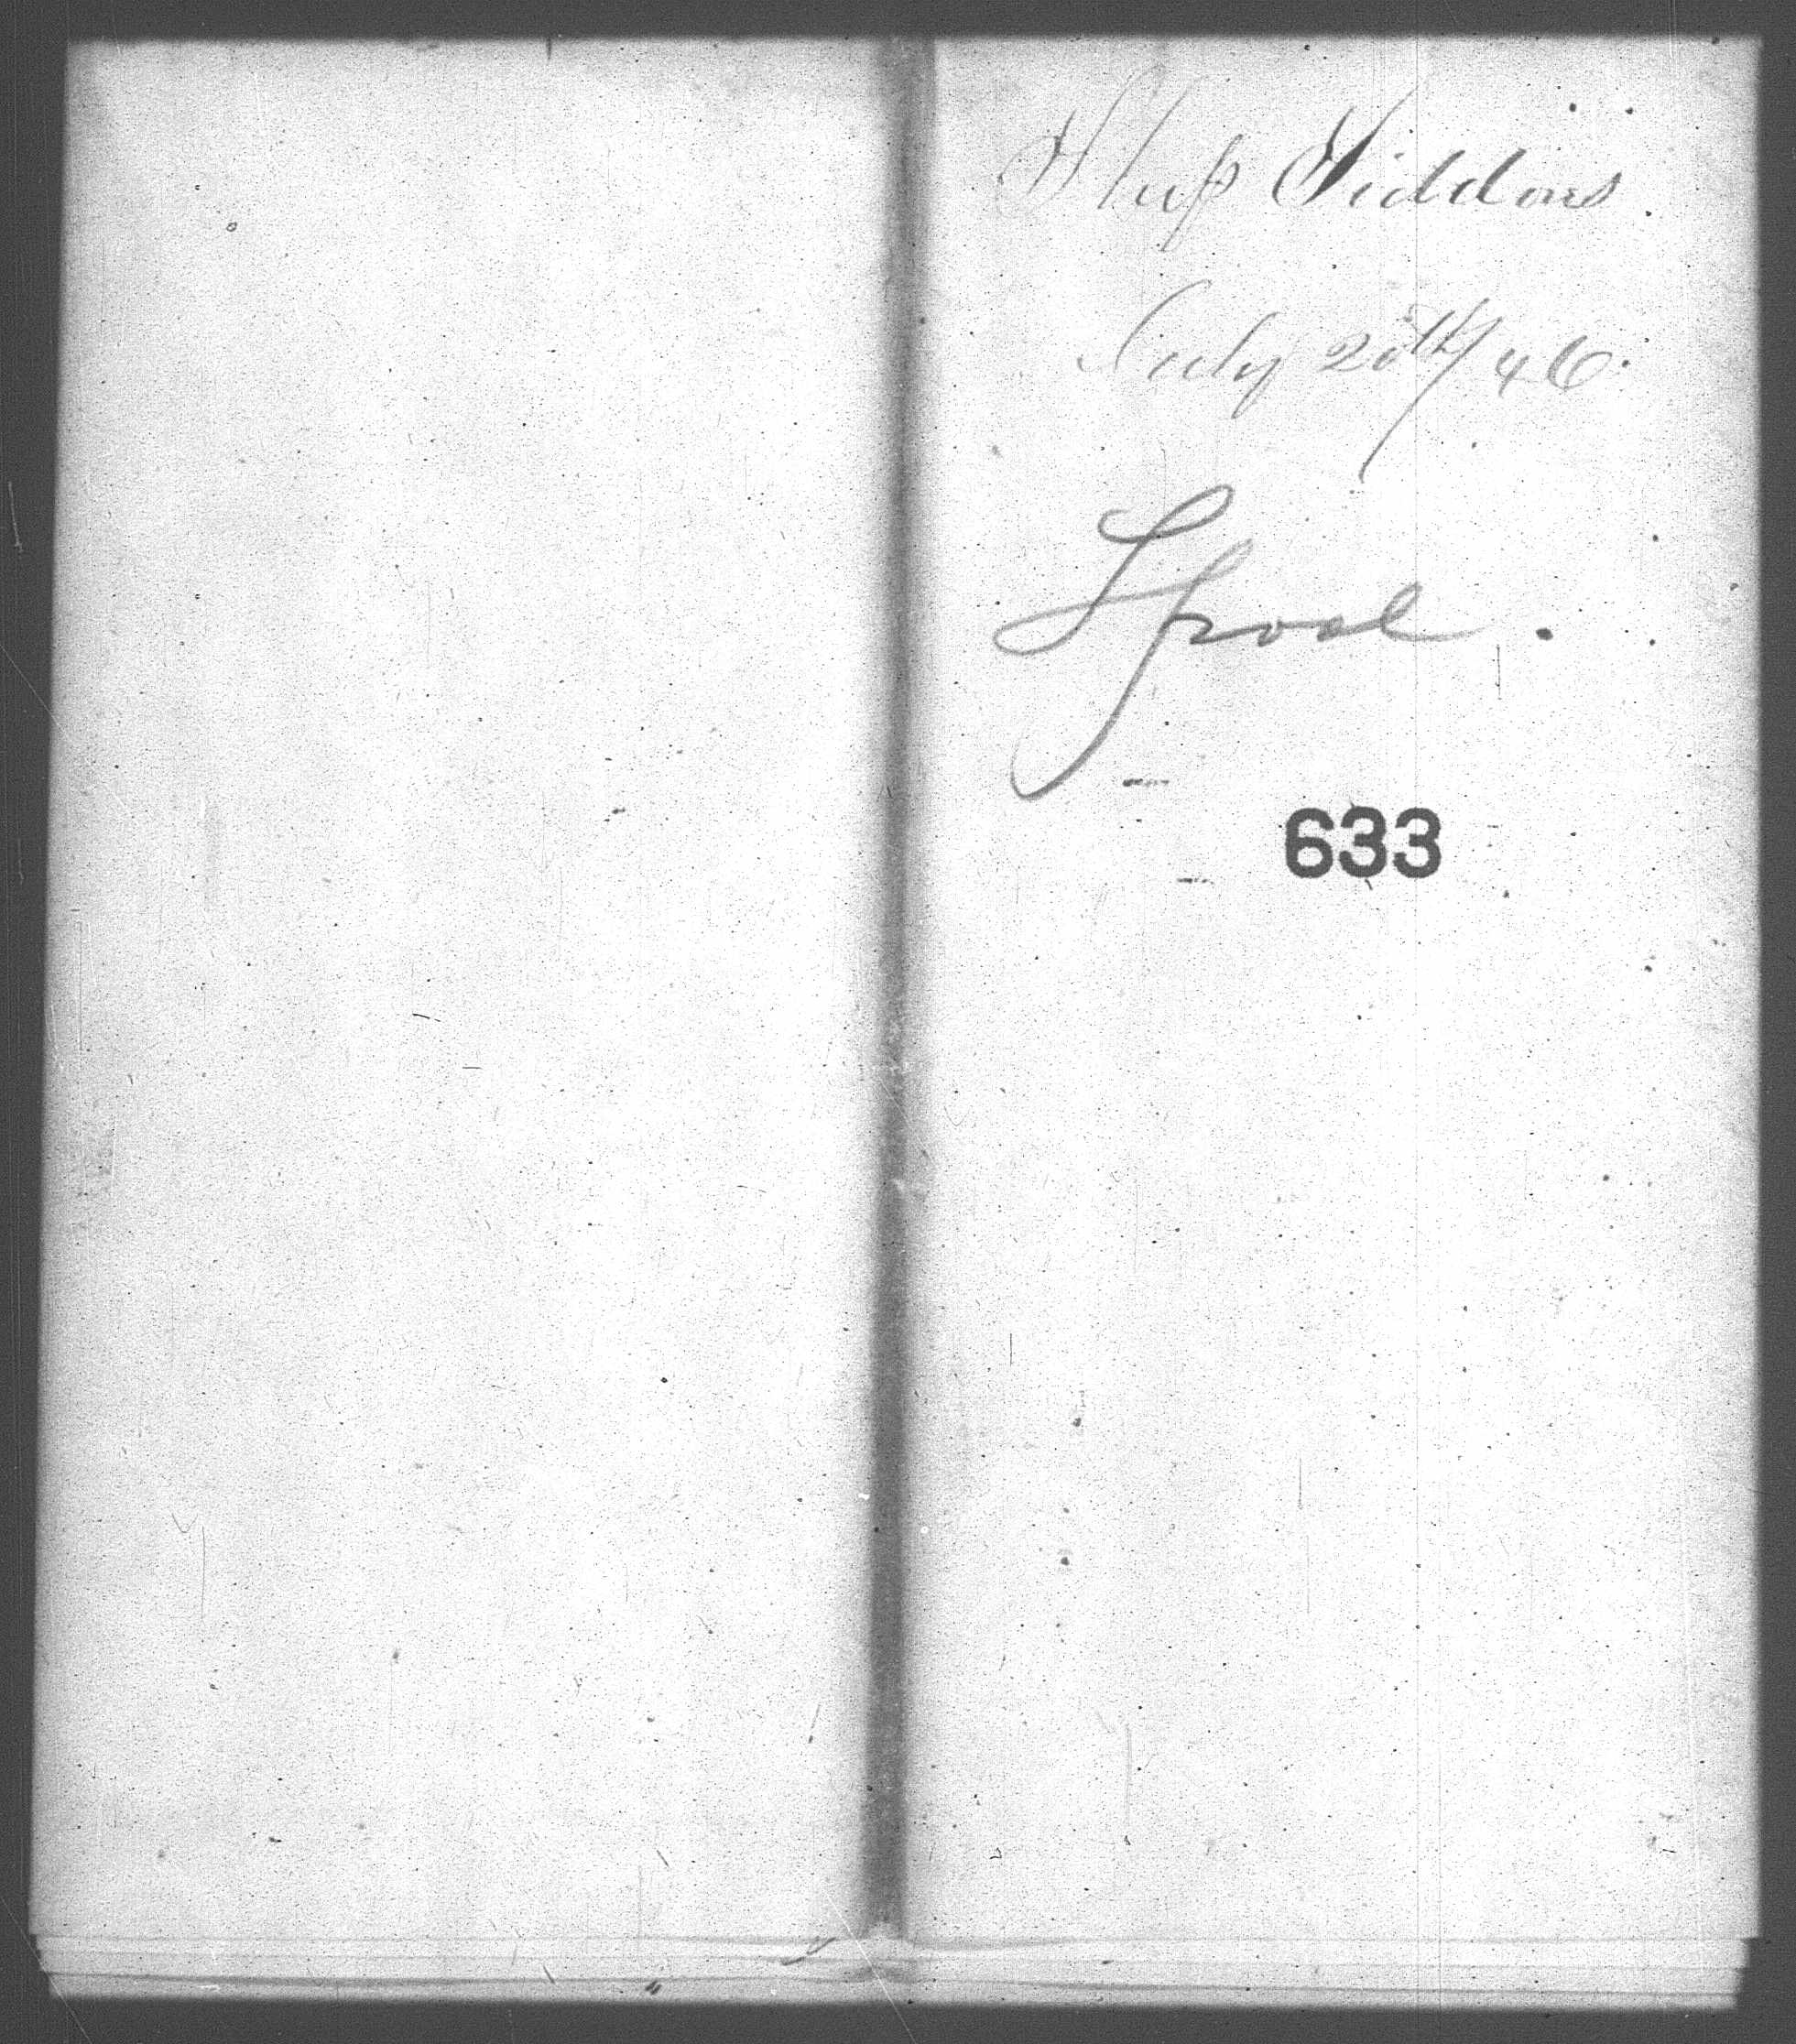 Ship Siddons.
July 20th/46.
L'pool.
633